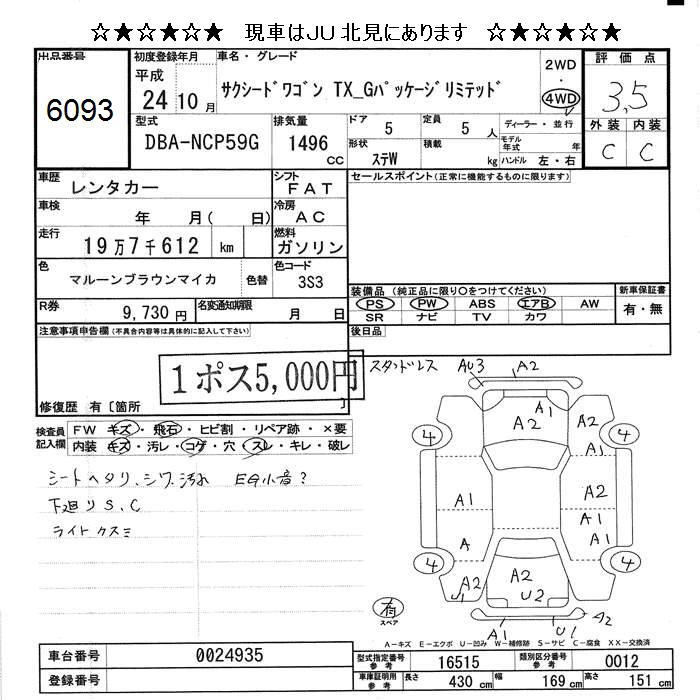 ☆★☆★☆★ 現車はJU北見にあります ☆★☆★☆★
出品番号 初度登録年月 車名・グレード 2WD 評価点
6093 平成 24年10月 サクシードワゴン TX_Gパッケージリミテッド ・ 4WD 3,5
外装 内装
C C
型式 排気量 ドア 定員 ディーラー・並行
DBA-NCP59G 1496cc 5 5人 モデル年式 年
形状 積載 ハンドル 左・右
ステW kg
車歴 レンタカー シフト FAT セールスポイント(正常に機能するものに限ります)
車検 年 月( 日) 冷房 AC
走行 19万7千612 km 燃料 ガソリン
色 マルーンブラウンマイカ 色替 色コード 3S3
装備品 (純正品に限り○をつけてください) 新車保証書
PS PW ABS エアB AW 有・無
SR ナビ TV カワ
R券 9,730円 名変通知期限 月 日
注意事項申告欄(不具合内容等は具体的に記入して下さい) 後日品
1ポス5,000円
修復歴 有〔箇所 〕
スタンドレス AU3 A2
検査員記入欄 FW キズ・飛石・ヒビ割・リペア跡・×要
内装 キズ・汚レ・コゲ・穴・スレ・キレ・破レ
シートヘタリ、シワ、汚れ EG小音?
下廻りS、C
ライトクスミ
A1
A2
4 4
A1 A2
A2
A1
A A1
4 4
A2 U1 A2 A2
U2
有 スペア
A1 U1 A2
A-キズ E-エクボ U-凹み W-補修跡 S-サビ C-腐食 XX-交換済
車台番号 0024935 型式指定番号 参考 16515 類別区分番号 参考 0012
登録番号 車庫証明用 参考 長さ 430 cm 幅 169 cm 高さ 151 cm